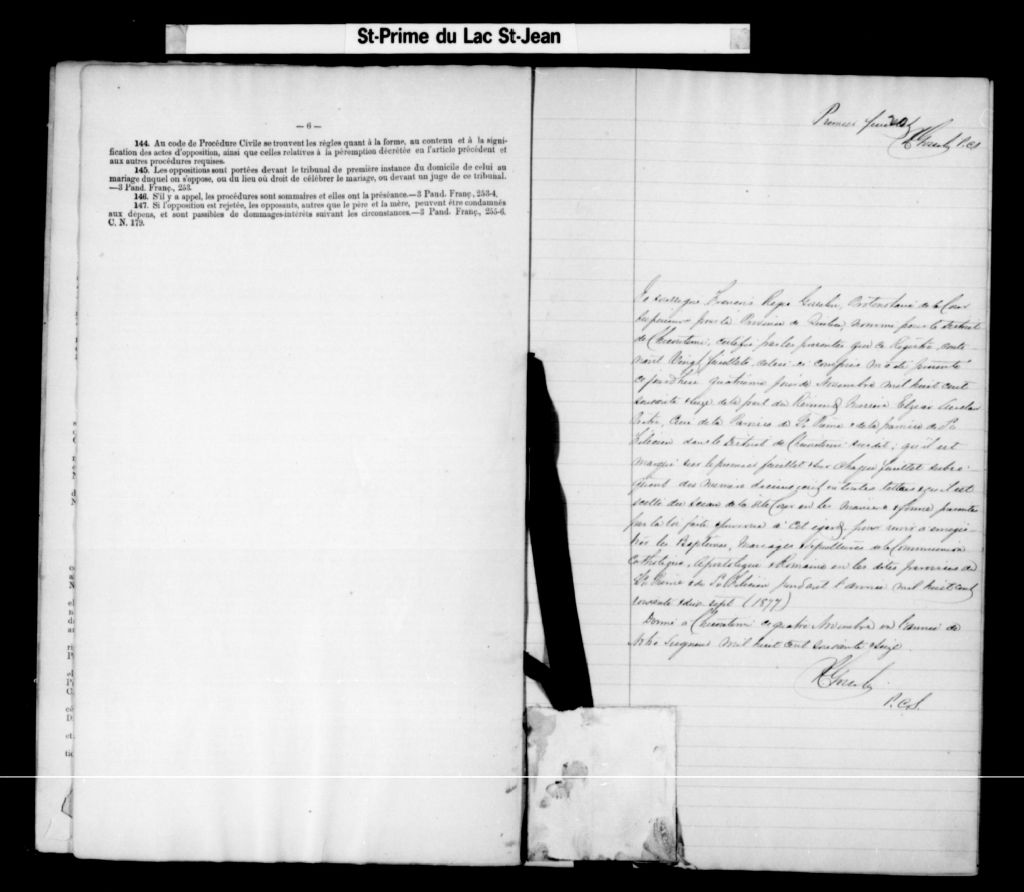 St-Prime du Lac St-Jean
— 6 —
144. Au code de Procédure Civile se trouvent les règles quant à la forme, au contenu et à la signi-
fication des actes d'opposition, ainsi que celles relatives à la péremption décrétée en l'article précédent et
aux autres procédures requises.
145. Les oppositions sont portées devant le tribunal de première instance du domicile de celui au
mariage duquel on s'oppose, ou du lieu où droit de célébrer le mariage, ou devant un juge de ce tribunal.
—3 Pand. Franç., 253.
146. S'il y a appel, les procédures sont sommaires et elles ont la préséance.—3 Pand. Franç., 253-4.
147. Si l'opposition est rejetée, les opposants, autres que le père et la mère, peuvent être condamnés
aux dépens, et sont passibles de dommages-intérêts suivant les circonstances.—3 Pand. Franç., 255-6.
C. N. 179.
Premier feuillet
P.C.S.
Je soussigné François Protonotaire de la Cour
Supérieure pour la Province de Québec, nommé pour le District
de Chicoutimi, certifie par les présentes que ce Registre, conte
nant Vingt feuillets, celui ci compris m'a été présenté
ce jourd'hui quatrième jour de Novembre mil huit cent
soixante & seize de la part du Révérend Messire Elzear
Prêtre, Curé de la Paroisse de St Prime & de la paroisse de St
Félicien dans le District de Chicoutimi susdit; qu'il est
marqué sur le premier feuillet & sur chaque feuillet subsé-
quent du numéro en toutes lettres & qu'il est
scellé du sceau de la dite Cour en la manière & forme prescrites
par la loi faite & pourvue à cet égard, pour servir à enregis
trer les Baptêmes, Mariages & Sépultures de la Communion
Catholique, Apostolique & Romaine en les dites paroisses de
St Prime & de St Félicien pendant l'année mil huit cent
soixante & dix sept (1877)
Donné à Chicoutimi ce quatre Novembre en l'année de
Notre Seigneur mil huit cent soixante & seize.
P.C.S.